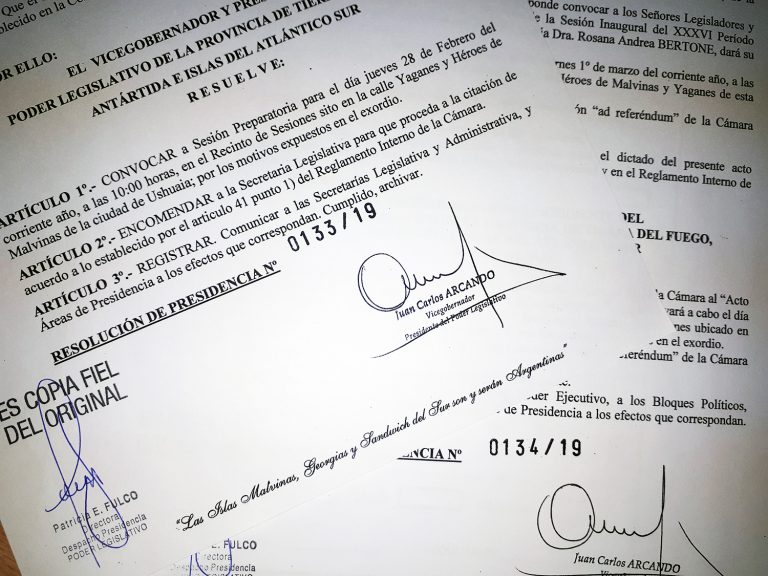 Que el
blecido en la C
OR ELLO:
EL VICEGOBERNADOR Y PRE
PODER LEGISLATIVO DE LA PROVINCIA DE TIER
ANTÁRTIDA E ISLAS DEL ATLÁNTICO SUR
R E S U E L V E:
ARTÍCULO 1º.- CONVOCAR a Sesión Preparatoria para el día jueves 28 de Febrero del
corriente año, a las 10:00 horas, en el Recinto de Sesiones sito en la calle Yaganes y Héroes de
Malvinas de la ciudad de Ushuaia; por los motivos expuestos en el exordio.
ARTÍCULO 2º.- ENCOMENDAR a la Secretaria Legislativa para que proceda a la citación de
acuerdo a lo establecido por el articulo 41 punto 1) del Reglamento Interno de la Cámara.
ARTÍCULO 3º.- REGISTRAR. Comunicar a las Secretarías Legislativa y Administrativa, y
Áreas de Presidencia a los efectos que correspondan. Cumplido, archivar.
RESOLUCIÓN DE PRESIDENCIA Nº 0133/19
Juan Carlos ARCANDO
Vicegobernador
Presidente del Poder Legislativo
ES COPIA FIEL
DEL ORIGINAL
Patricia E. FULCO
Directora
Despacho Presidencia
PODER LEGISLATIVO
"Las Islas Malvinas, Georgias y Sandwich del Sur son y serán Argentinas"
ponde convocar a los Señores Legisladores y
e la Sesión Inaugural del XXXVI Período
la Dra. Rosana Andrea BERTONE, dará su
ernes 1º de marzo del corriente año, a las
Héroes de Malvinas y Yaganes de esta
ón "ad referéndum" de la Cámara
el dictado del presente acto
y en el Reglamento Interno de
DEL
A DEL FUEGO,
R
la Cámara al "Acto
vará a cabo el día
nes ubicado en
en el exordio.
eferéndum" de la Cámara
der Ejecutivo, a los Bloques Políticos,
de Presidencia a los efectos que correspondan.
ENCIA Nº 0134/19
E. FULCO
Directora
Despacho Presidencia
PODER LEGISLATIVO
Juan Carlos ARCANDO